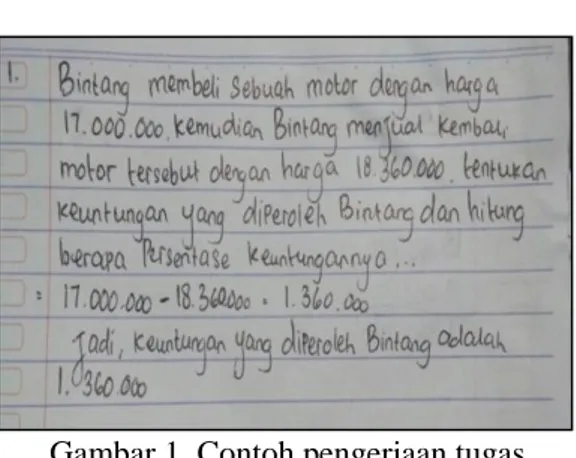 1. Bintang membeli sebuah motor dengan harga
17.000.000. Kemudian Bintang menjual kembali
motor tersebut dengan harga 18.360.000. tentukan
keuntungan yang diperoleh Bintang dan hitung
berapa Persentase keuntungannya...
= 17.000.000 - 18.360.000 = 1.360.000
Jadi, keuntungan yang diperoleh Bintang adalah
1.360.000
Gambar 1. Contoh pengerjaan tugas